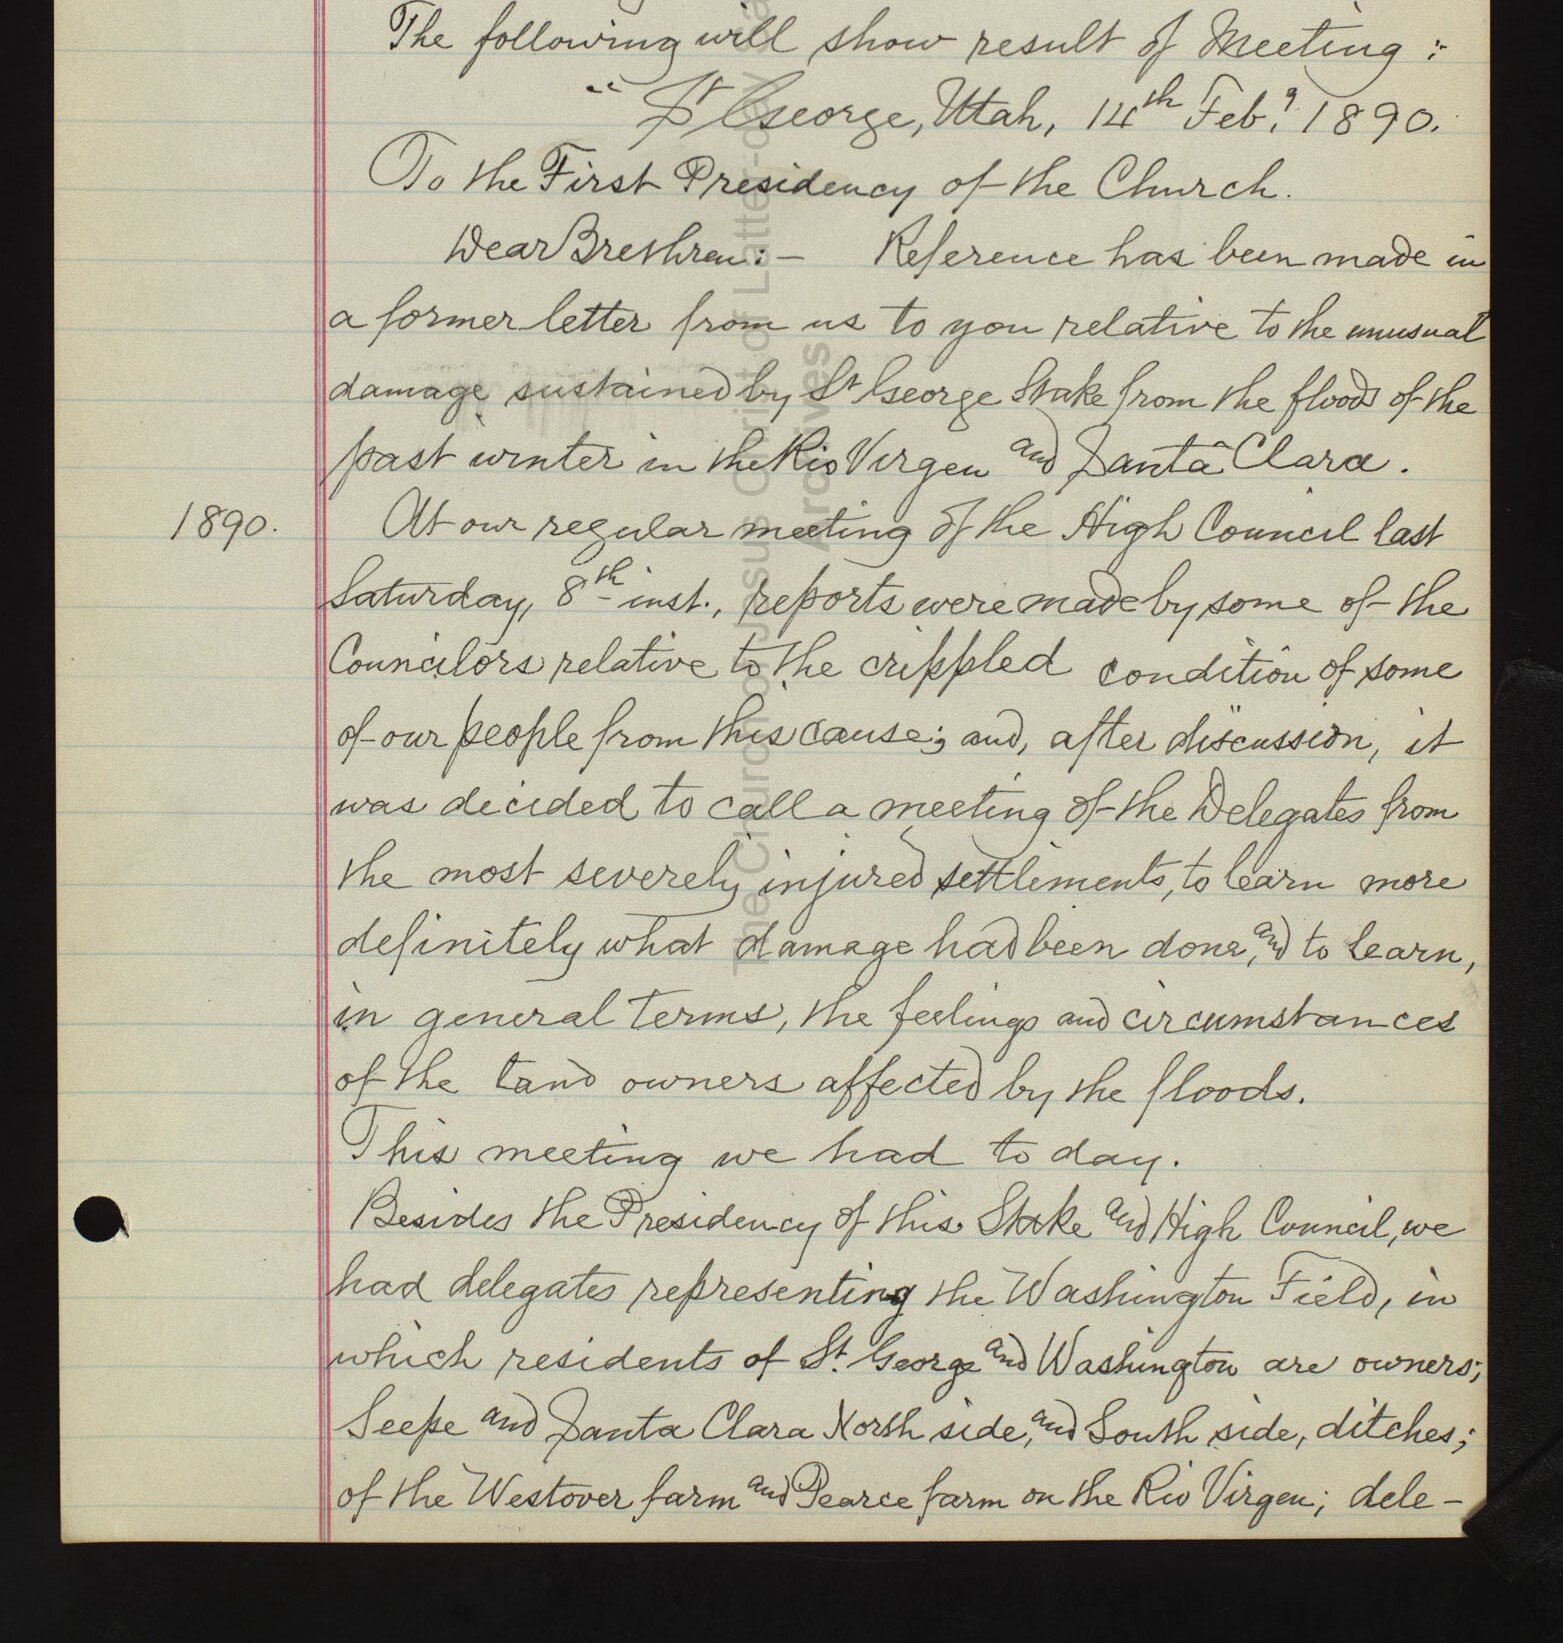 The following will show result of Meeting :
"St George, Utah, 14th Feby 1890.
To the First Presidency of the Church.
Dear Brethren:- Reference has been made in
a former letter from us to you relative to the unusual
damage sustained by St George Stake from the floods of the
past winter in the Rio Virgen and Santa Clara.
1890. At our regular meeting of the High Council last
Saturday, 8th inst., reports were made by some of the
Councilors relative to the crippled condition of some
of our people from this cause; and, after discussion, it
was decided to call a meeting of the Delegates from
the most severely injured settlements, to learn more
definitely what damage had been done, and to learn,
in general terms, the feelings and circumstances
of the land owners affected by the floods.
This meeting we had to day.
Besides the Presidency of this Stake and High Council, we
had delegates representing the Washington Field, in
which residents of St. George and Washington are owners;
Seepe and Santa Clara North side, and South side, ditches;
of the Westover farm and Pearce farm on the Rio Virgen; dele-
The Church of Jesus Christ of Latter-day
Archives